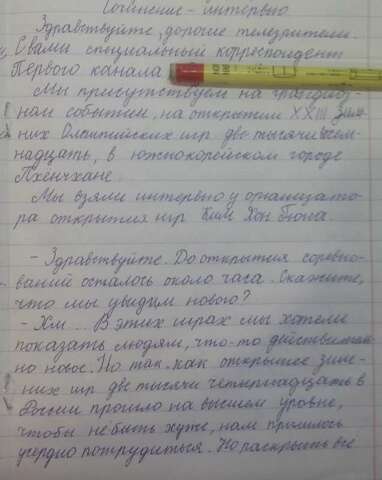 Сочинение - интервью
Здравствуйте, дорогие телезрители.
С вами специальный корреспондент
Первого канала
Мы присутствуем на грандиоз-
ном событии, на открытии XXIII зим-
них Олимпийских игр две тысячи восем-
надцать, в южнокорейском городе
Пхёнчхане.
Мы взяли интервью у организато-
ра открытия игр Ким Хон Гюна.
- Здравствуйте. До открытия соревно-
ваний осталось около часа. Скажите,
что мы увидим нового?
- Хм... В этих играх мы хотели
показать людям, что-то действитель-
но новое. Но так как открытие зим-
них игр две тысячи четырнадцать в
России прошло на высшем уровне,
чтобы не быть хуже, нам пришлось
усердно потрудиться. Но раскрыть все